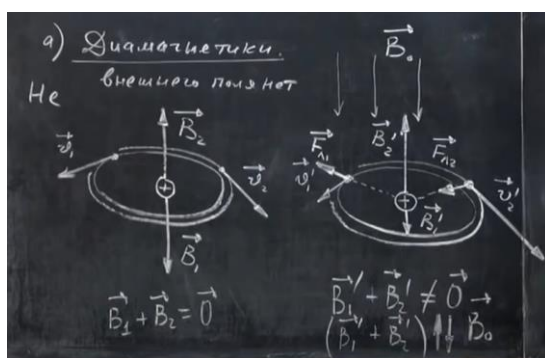 а) Диамагнетики.
внешнего поля нет
He
B⃗₂
v⃗₁
v⃗₂
B⃗₁
B⃗₁ + B⃗₂ = 0⃗
B⃗₀
F⃗л₁
B⃗₂'
F⃗л₂
v⃗₁'
B⃗₁'
v⃗₂'
B⃗₁' + B⃗₂' ≠ 0⃗
(B⃗₁' + B⃗₂') ↑↓ B⃗₀